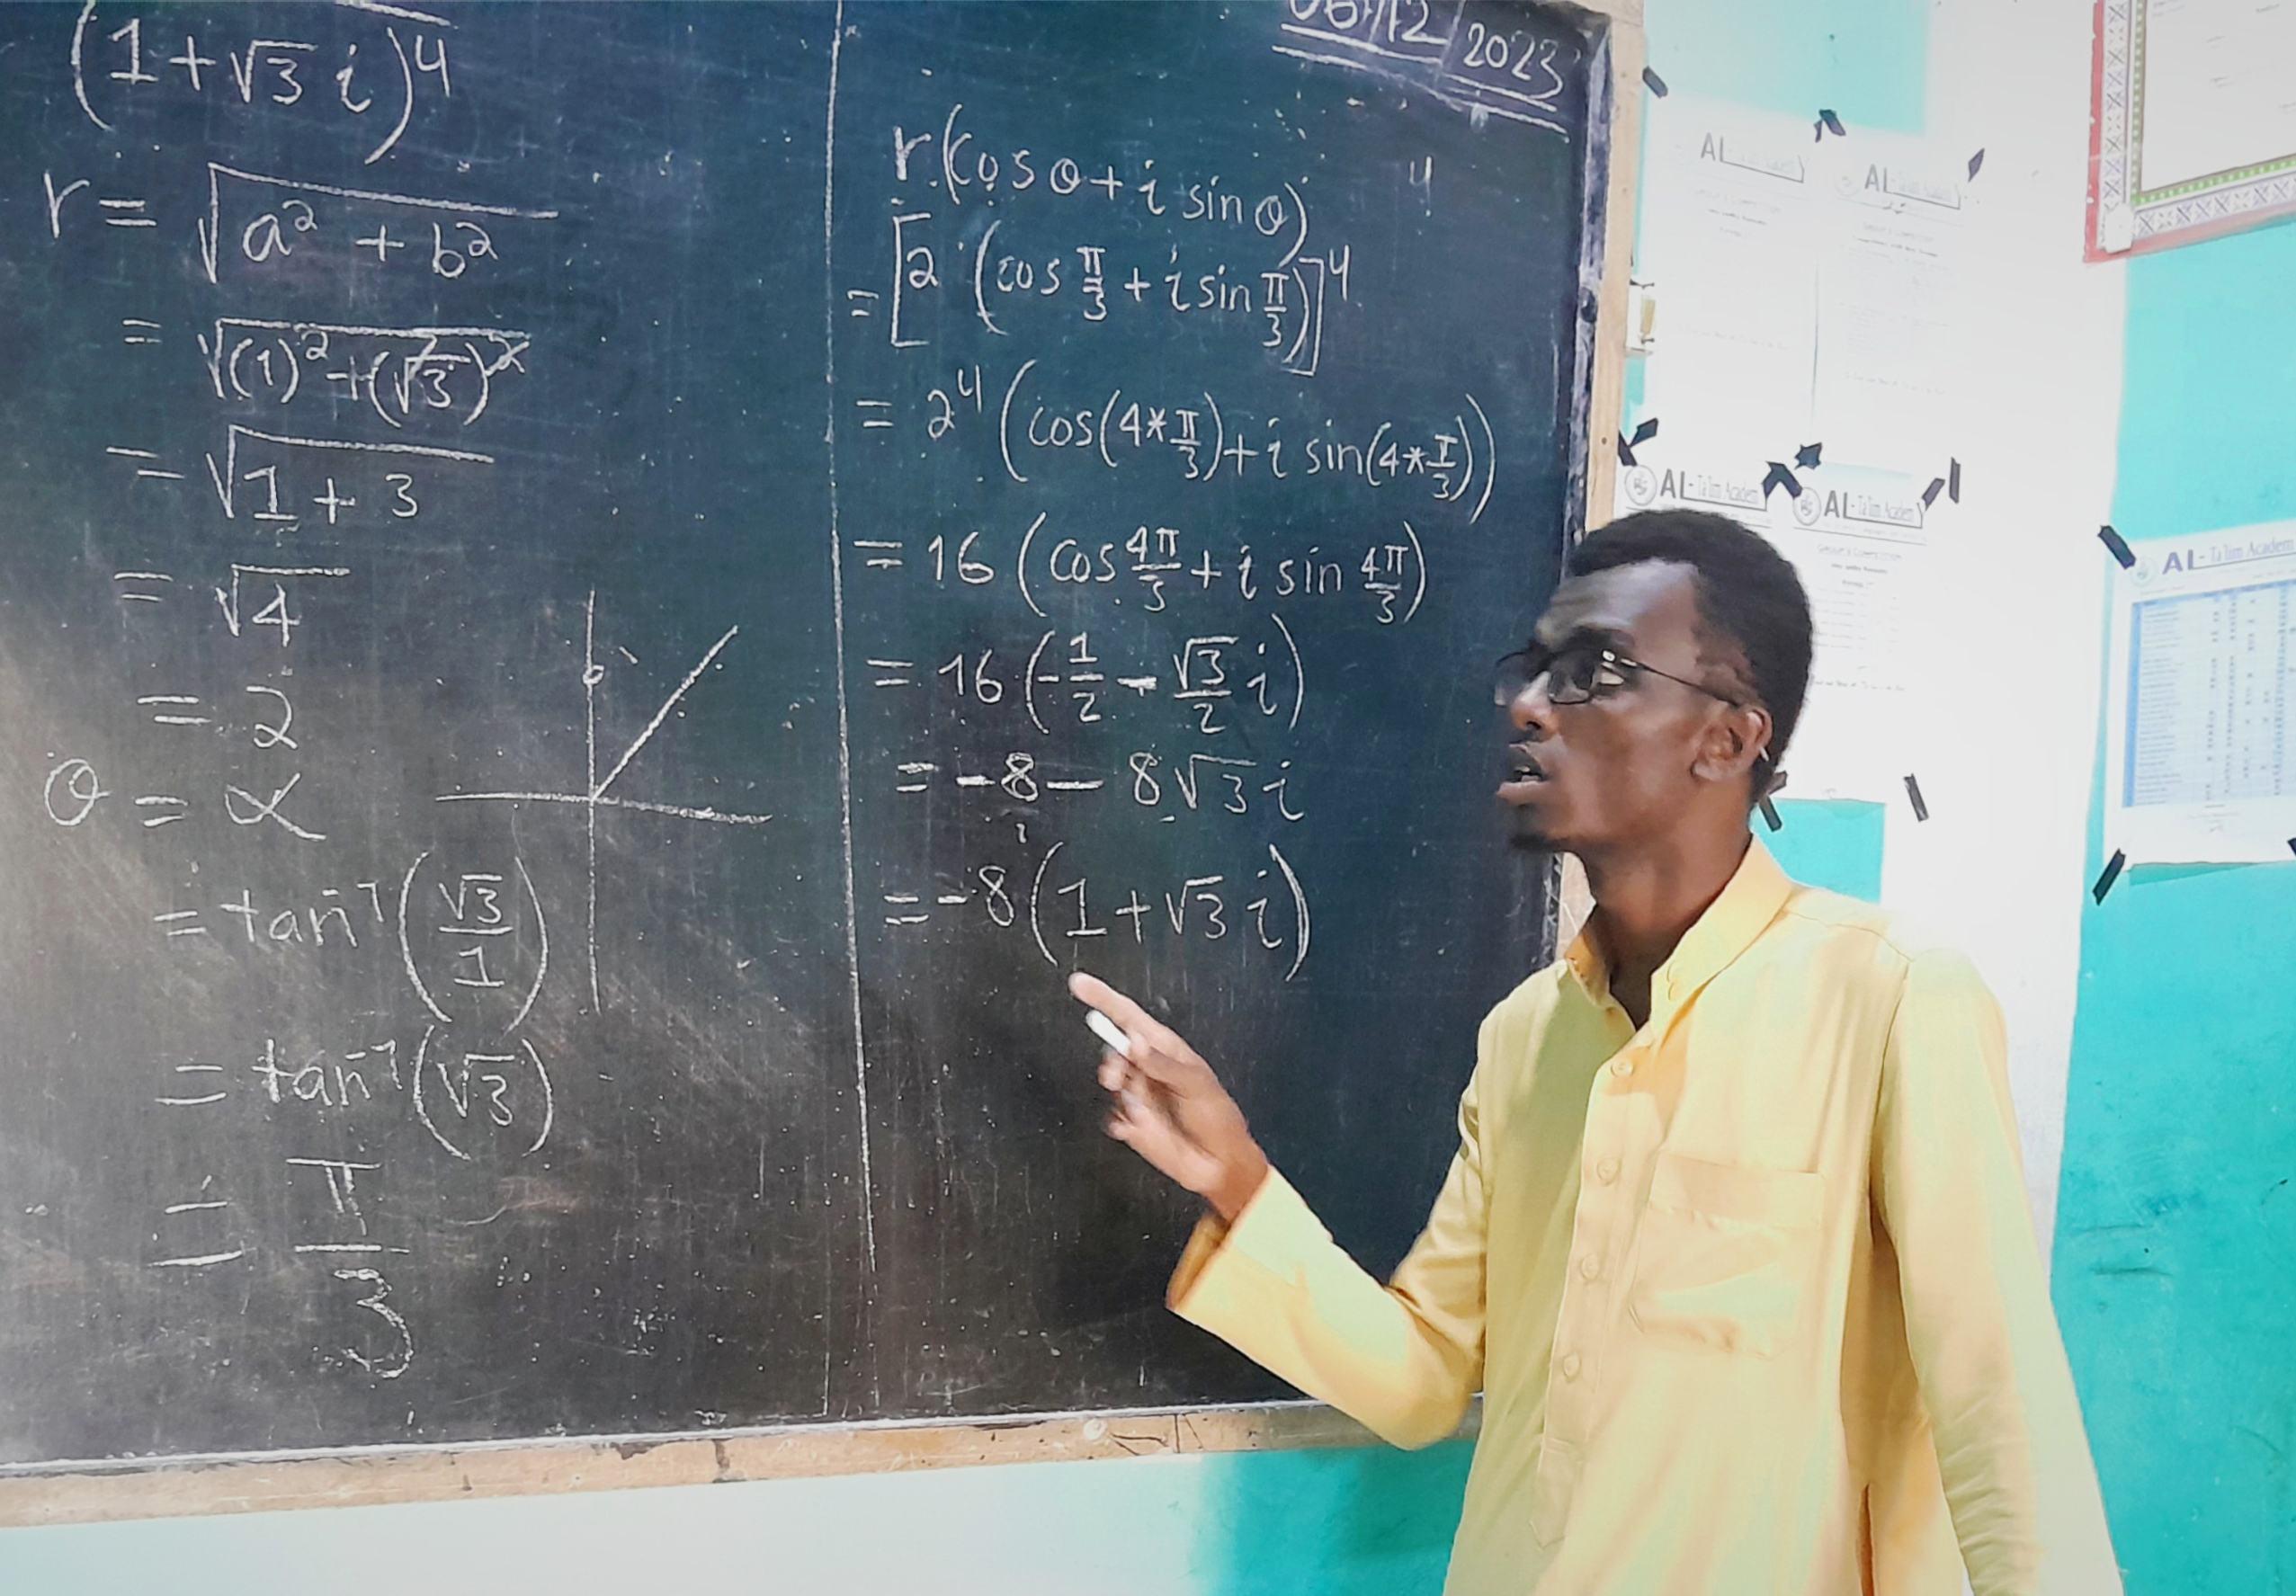 (1+√3 i)⁴
r = √(a² + b²)
= √((1)²+(√3)²)
= √(1 + 3)
= √4
= 2
θ = α
= tan⁻¹(√3/1)
= tan⁻¹(√3)
= π/3
06/12/2023
r(cos θ + i sin θ) 4
= [2 (cos π/3 + i sin π/3)]⁴
= 2⁴ (cos(4*π/3)+i sin(4*π/3))
= 16 (cos 4π/3 + i sin 4π/3)
= 16 (-1/2 - √3/2 i)
= -8 - 8√3 i
= -8(1+√3 i)
AL
AL
AL-Ta'lim Academ
AL-Ta'lim Academy
AL-Ta'lim Academ